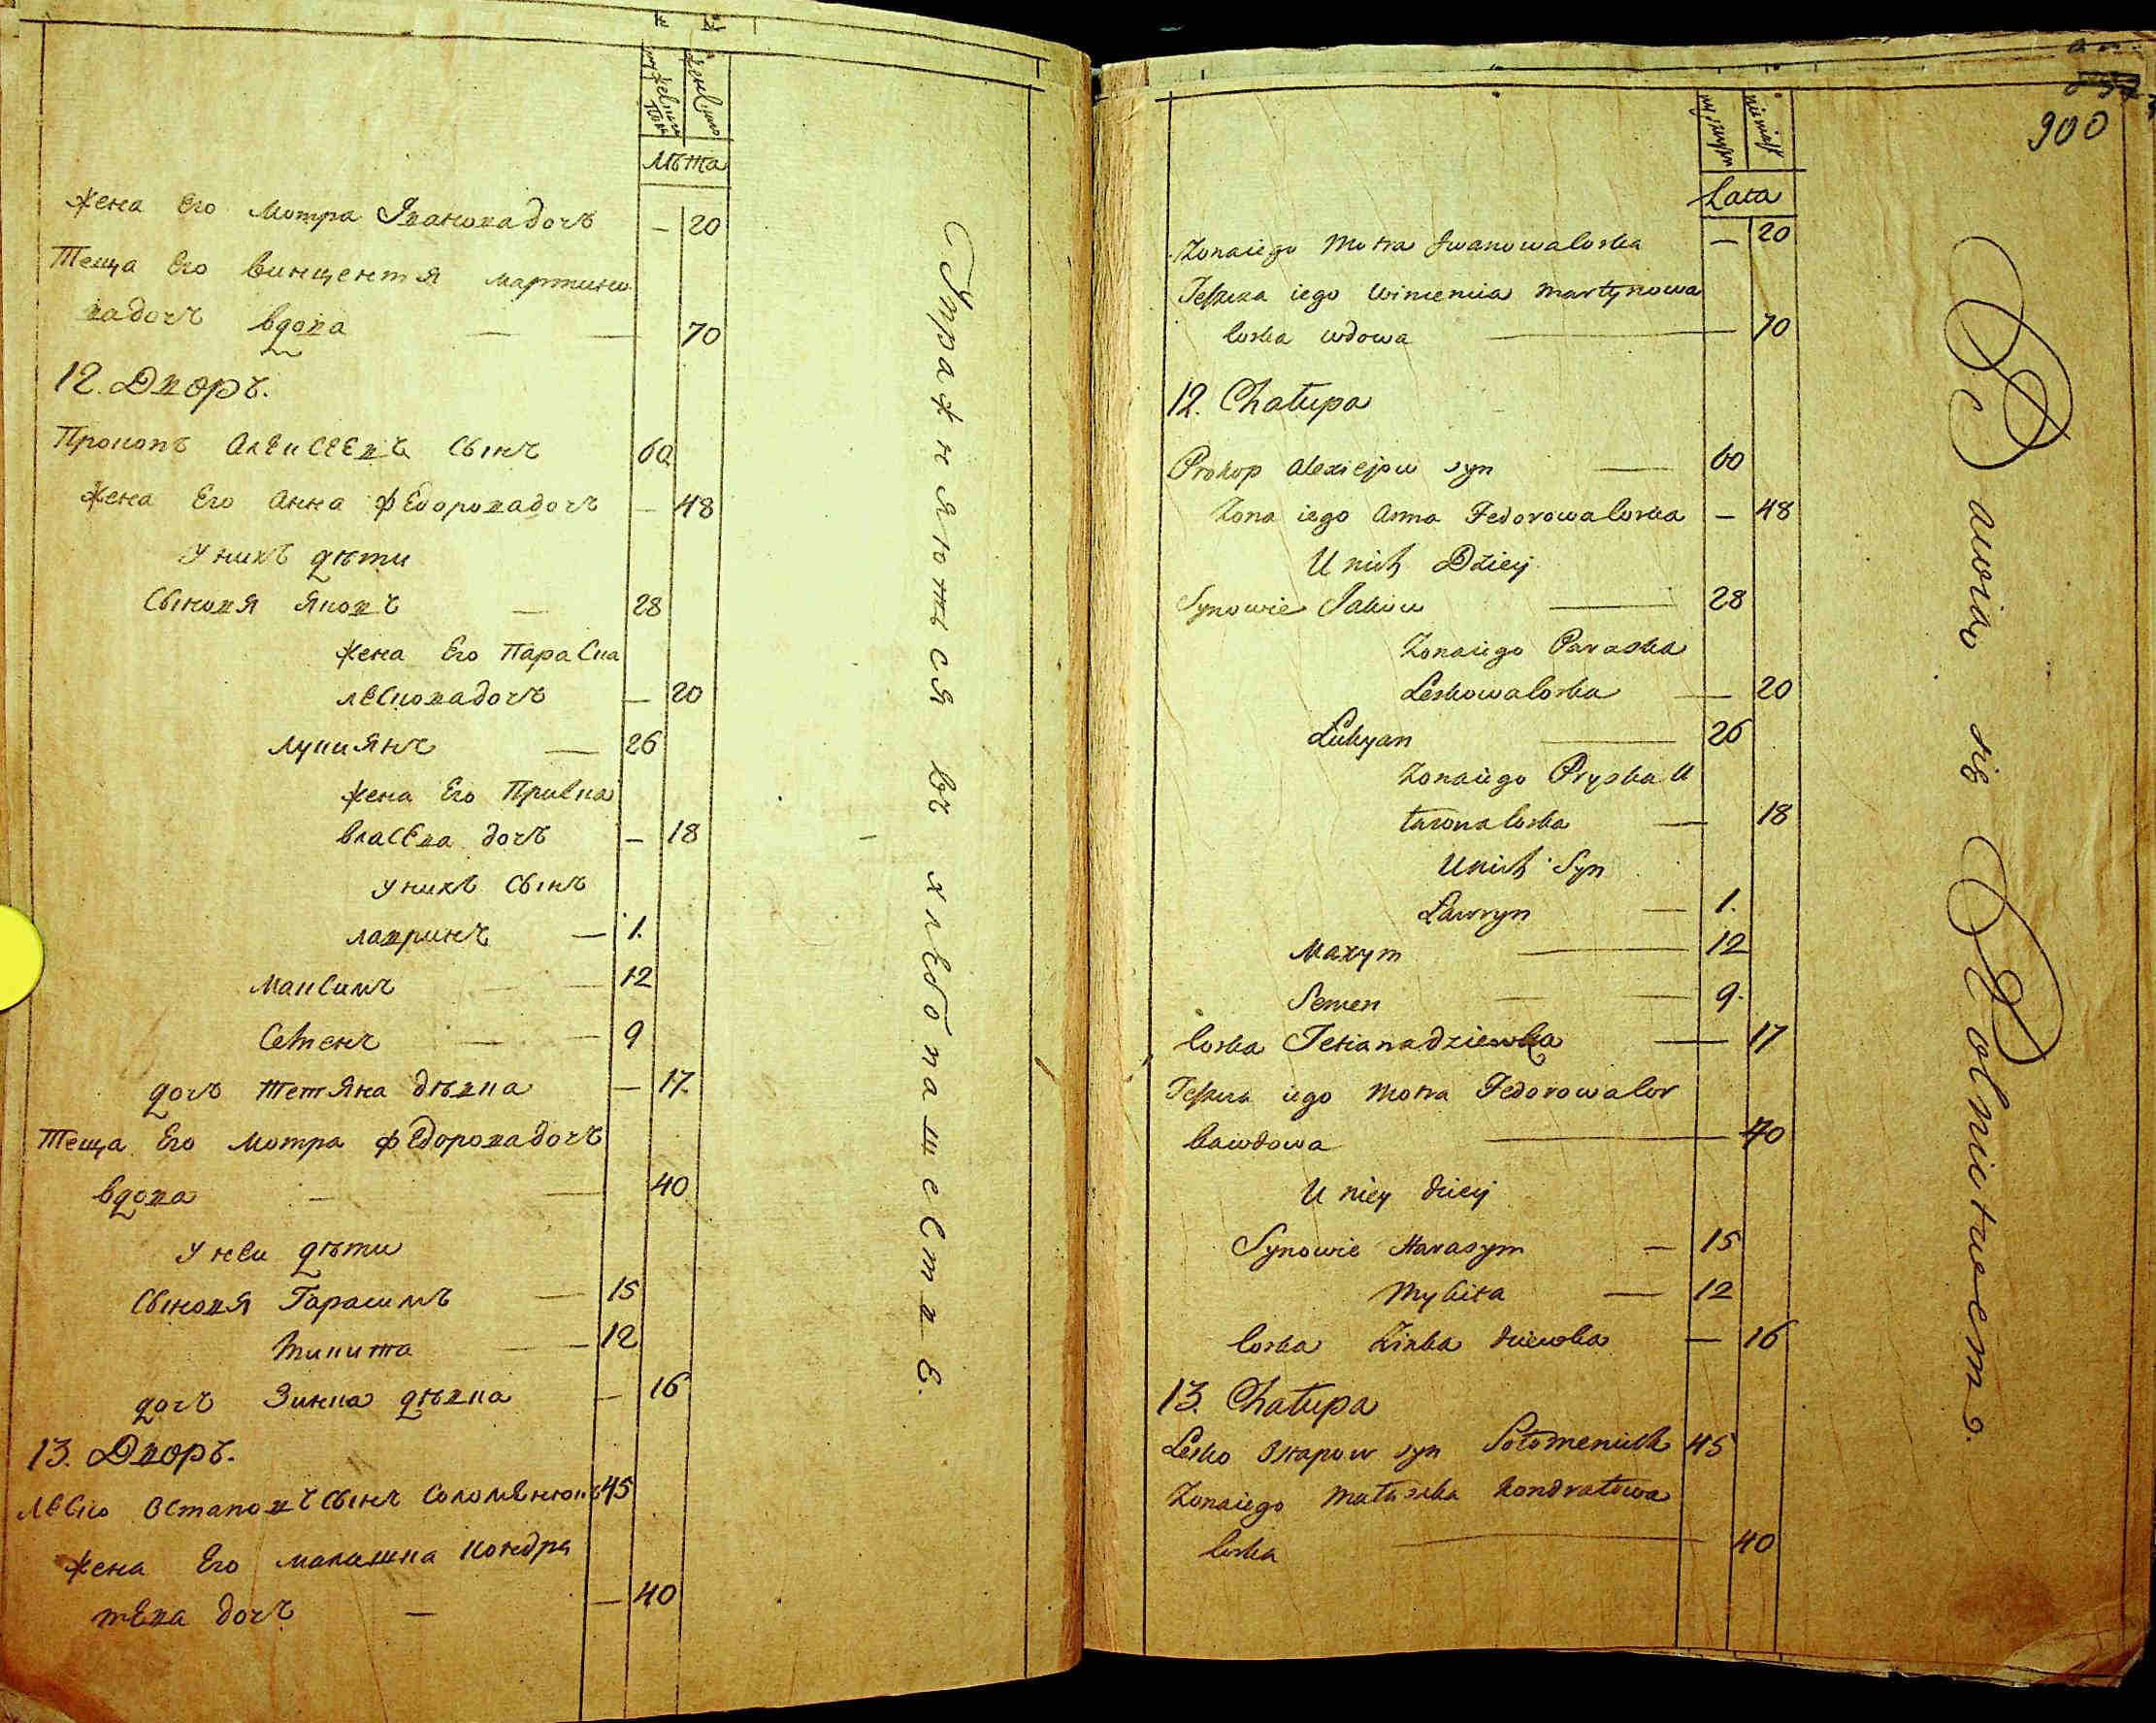 Лѣта
жена Его Мотра Івановадочъ — 20
Теща Его винцентя мартино
вадочъ вдова — — 70
12. Дворъ.
Прокопъ Алексеевъ Сынъ 60
жена Его Анна Федоровадочъ — 48
У нихъ дѣти
Сыновя Яковъ — 28
жена Его Параска
лесковадочъ — 20
лукиянъ — 26
жена Его Приска
власева дочъ — 18
У нихъ Сынъ
лавринъ — 1.
Максимъ — 12
Семенъ — 9
дочъ тетяна дѣвка — 17.
Теща Его Мотра Федоровадочъ
вдова — — 40
У неи дѣти
Сыновя Гарасимъ — 15
Микита — 12
дочъ Зинка дѣвка — 16
13. Дворъ.
леско Остаповъ Сынъ Соломенюкъ 45
жена Его малашка кондра
тева дочъ — — 40
Упражняются въ хлебопашестве.
900
Lata
Żonaiego Motra Iwanowacorka — 20
Teszcza iego Wincencia Martynowa
corka wdowa — 70
12. Chałupa
Prokop Alexiejow syn — 60
Żona iego Anna Fedorowacorka — 48
U nich Dziey
Synowie Jakow — 28
Żonaiego Paraska
Leskowacorka — 20
Łukyan — 26
Żonaiego Pryska U
łasowacorka — 18
U nich Syn
Ławryn — 1.
Maxym — 12
Semen — — 9.
Corka Tetiana dziewka — 17
Teszcza iego Motra Fedorowacor
kawdowa — 40
U niey dziey
Synowie Harasym — 15
Mykita — 12
Corka Zinka dziewka — 16
13. Chałupa
Lesko Ostapow syn Sołomeniuk 45
Żonaiego Małaszka Kondratowa
corka — 40
Bawią się Rolnictwem.